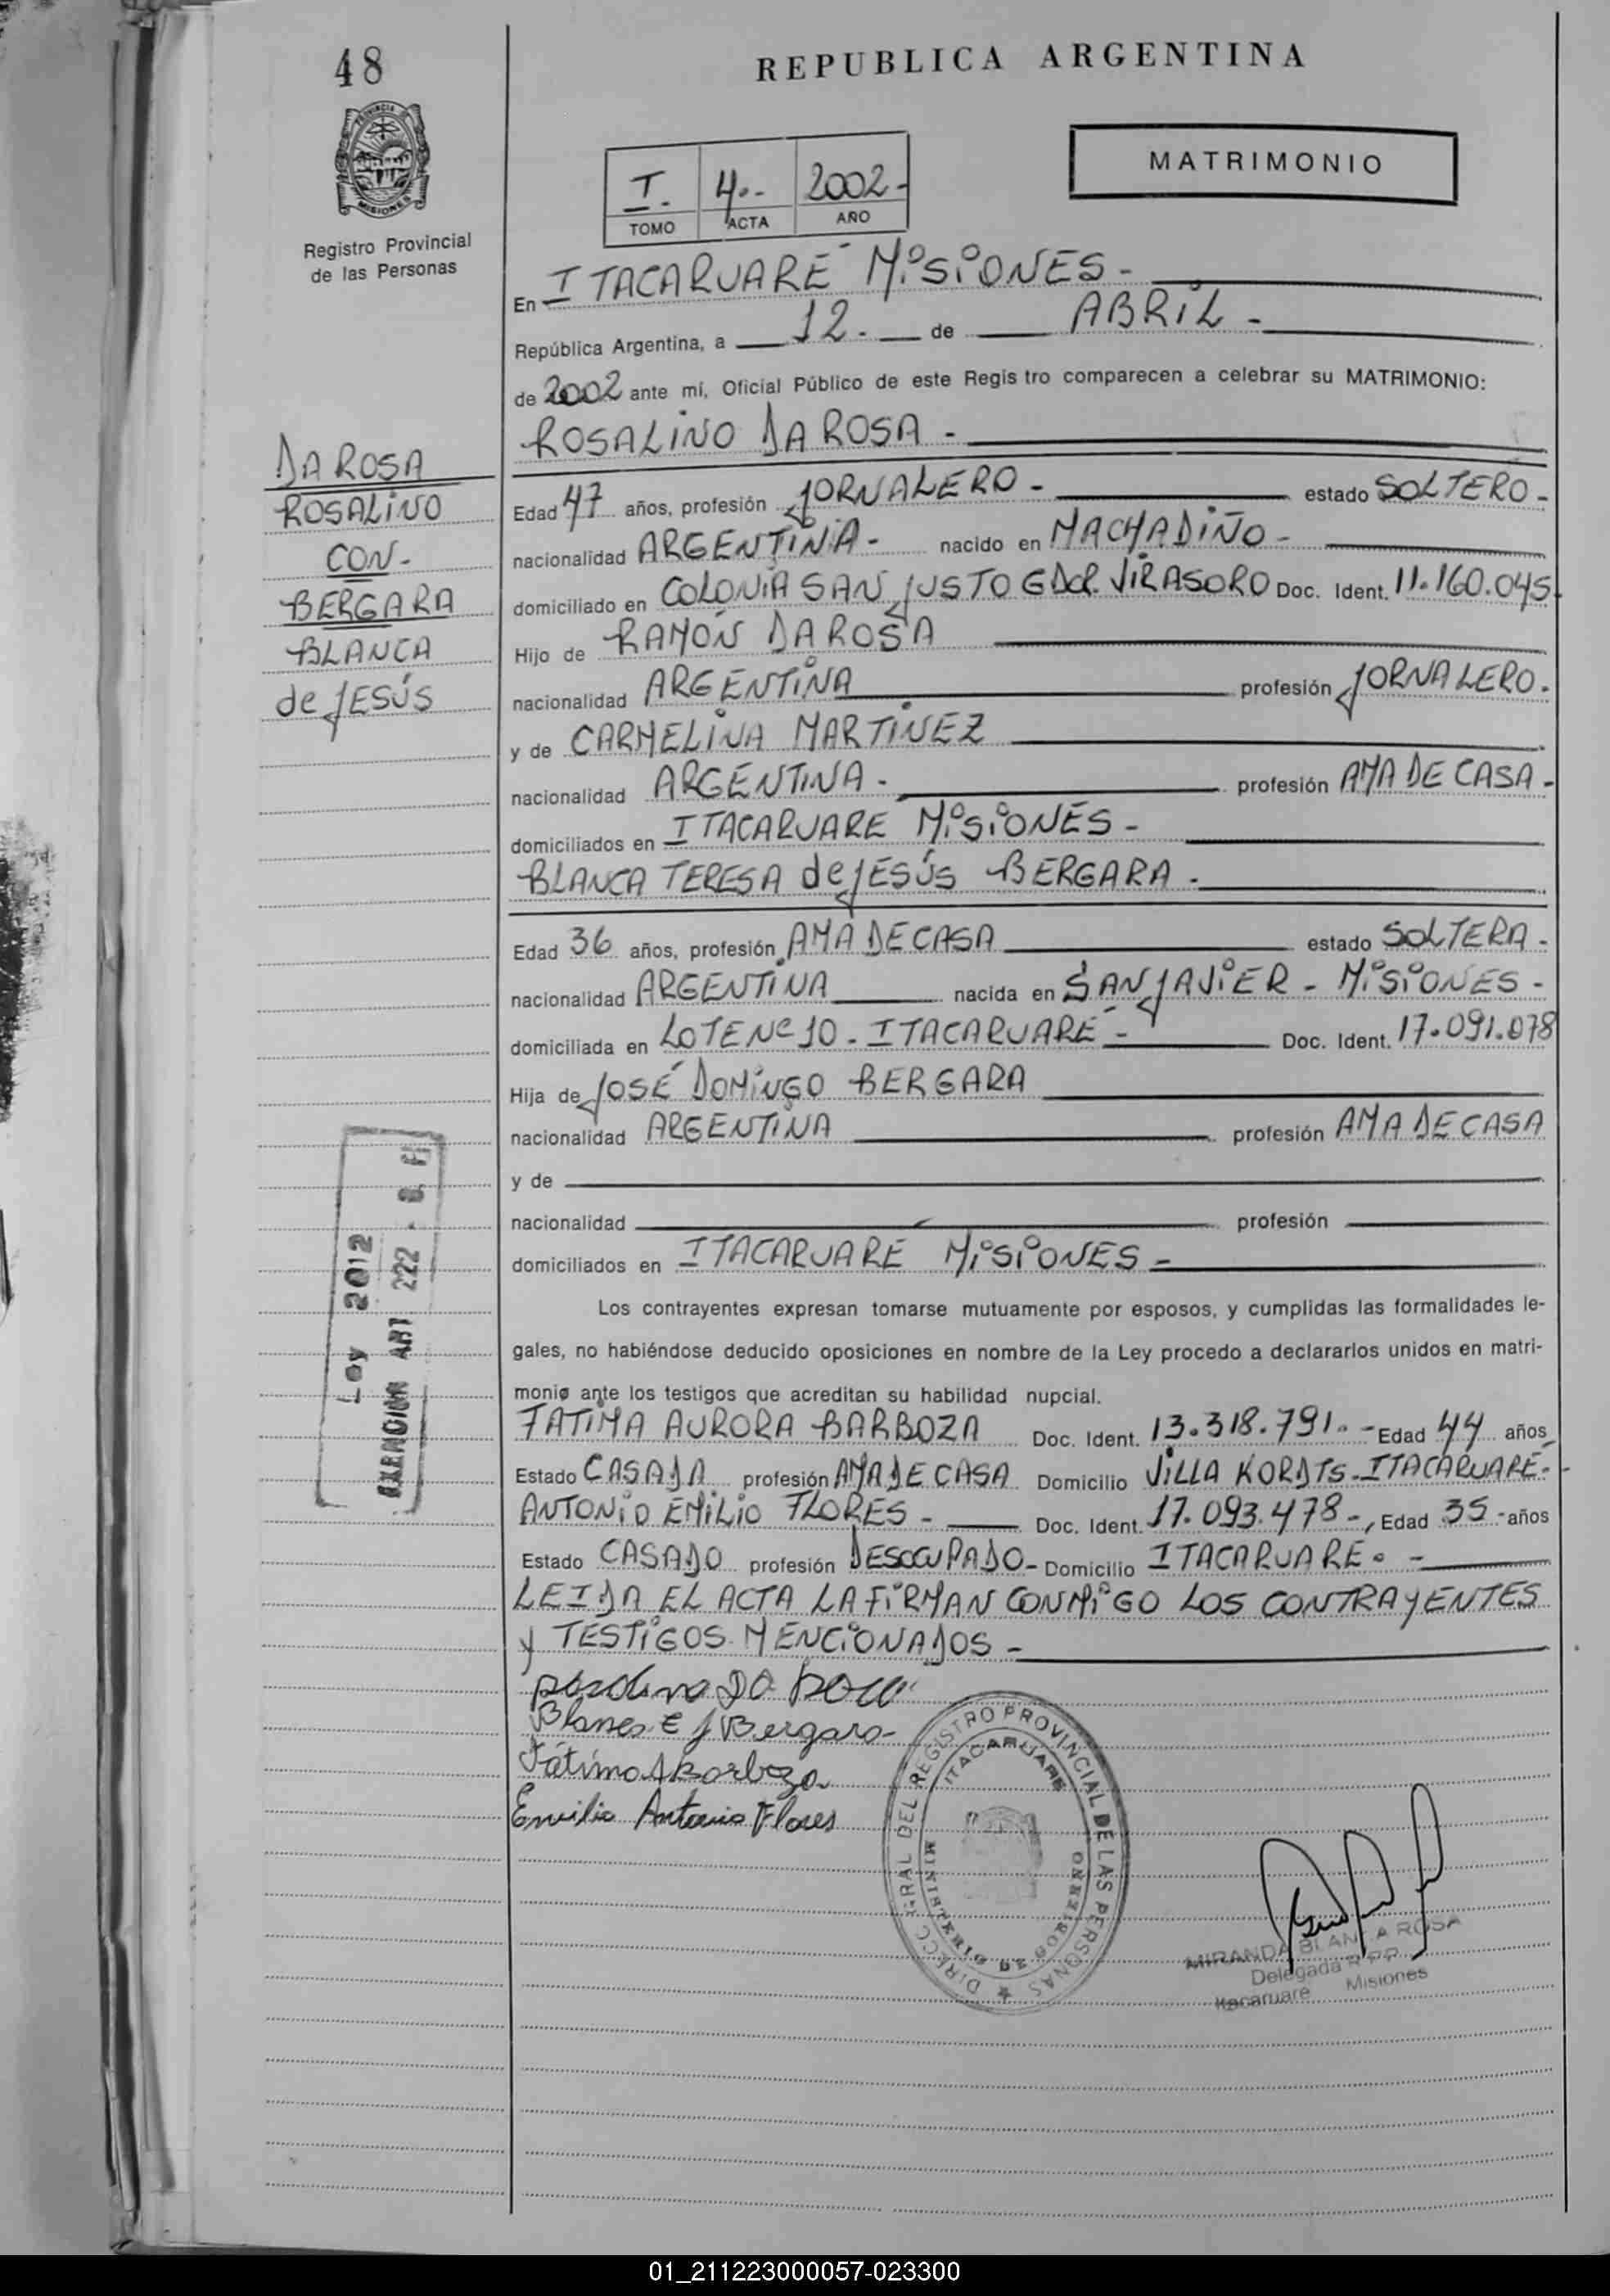 48
REPUBLICA ARGENTINA
PROVINCIA DE
MISIONES
Registro Provincial
de las Personas
I. 4.- 2002-
TOMO ACTA AÑO
MATRIMONIO
En ITACARUARÉ MISIONES -
República Argentina, a 12. de ABRIL -
de 2002 ante mí, Oficial Público de este Regis tro comparecen a celebrar su MATRIMONIO:
ROSALINO DA ROSA -
DA ROSA
ROSALINO
CON-
BERGARA
BLANCA
de JESÚS
Edad 47 años, profesión JORNALERO - estado SOLTERO -
nacionalidad ARGENTINA - nacido en MACHADIÑO -
domiciliado en COLONIA SAN JUSTO GDOR. VIRASORO Doc. Ident. 11.160.045
Hijo de RAMÓN DA ROSA
nacionalidad ARGENTINA profesión JORNALERO.
y de CARMELINA MARTINEZ
nacionalidad ARGENTINA - profesión AMA DE CASA -
domiciliados en ITACARUARE MISIONES -
BLANCA TERESA de JESÚS BERGARA -
Edad 36 años, profesión AMA DE CASA estado SOLTERA -
nacionalidad ARGENTINA nacida en SAN JAVIER - MISIONES -
domiciliada en LOTE Nº 10 - ITACARUARÉ - Doc. Ident. 17.091.078
Hija de JOSÉ DOMINGO BERGARA
nacionalidad ARGENTINA profesión AMA DE CASA
y de
nacionalidad profesión
domiciliados en ITACARUARE MISIONES -
Ley 2012
ART. 222
Los contrayentes expresan tomarse mutuamente por esposos, y cumplidas las formalidades le-
gales, no habiéndose deducido oposiciones en nombre de la Ley procedo a declararlos unidos en matri-
monio ante los testigos que acreditan su habilidad nupcial.
FATIMA AURORA BARBOZA Doc. Ident. 13.318.791.- Edad 44 años
Estado CASADA profesión AMA DE CASA Domicilio VILLA KORDTS - ITACARUARE -
ANTONIO EMILIO FLORES - Doc. Ident. 17.093.478-, Edad 35 - años
Estado CASADO profesión DESOCUPADO - Domicilio ITACARUARE. -
LEIDA EL ACTA LA FIRMAN CONMIGO LOS CONTRAYENTES
y TESTIGOS MENCIONADOS -
Fátima A Barboza
Emilio Antonio Flores
REGISTRO PROVINCIAL DE LAS PERSONAS
ITACARUARE
MINISTERIO DE GOBIERNO
MIRANDA BLANCA ROSA
Delegada R P P
Itacaruare Misiones
01_211223000057-023300